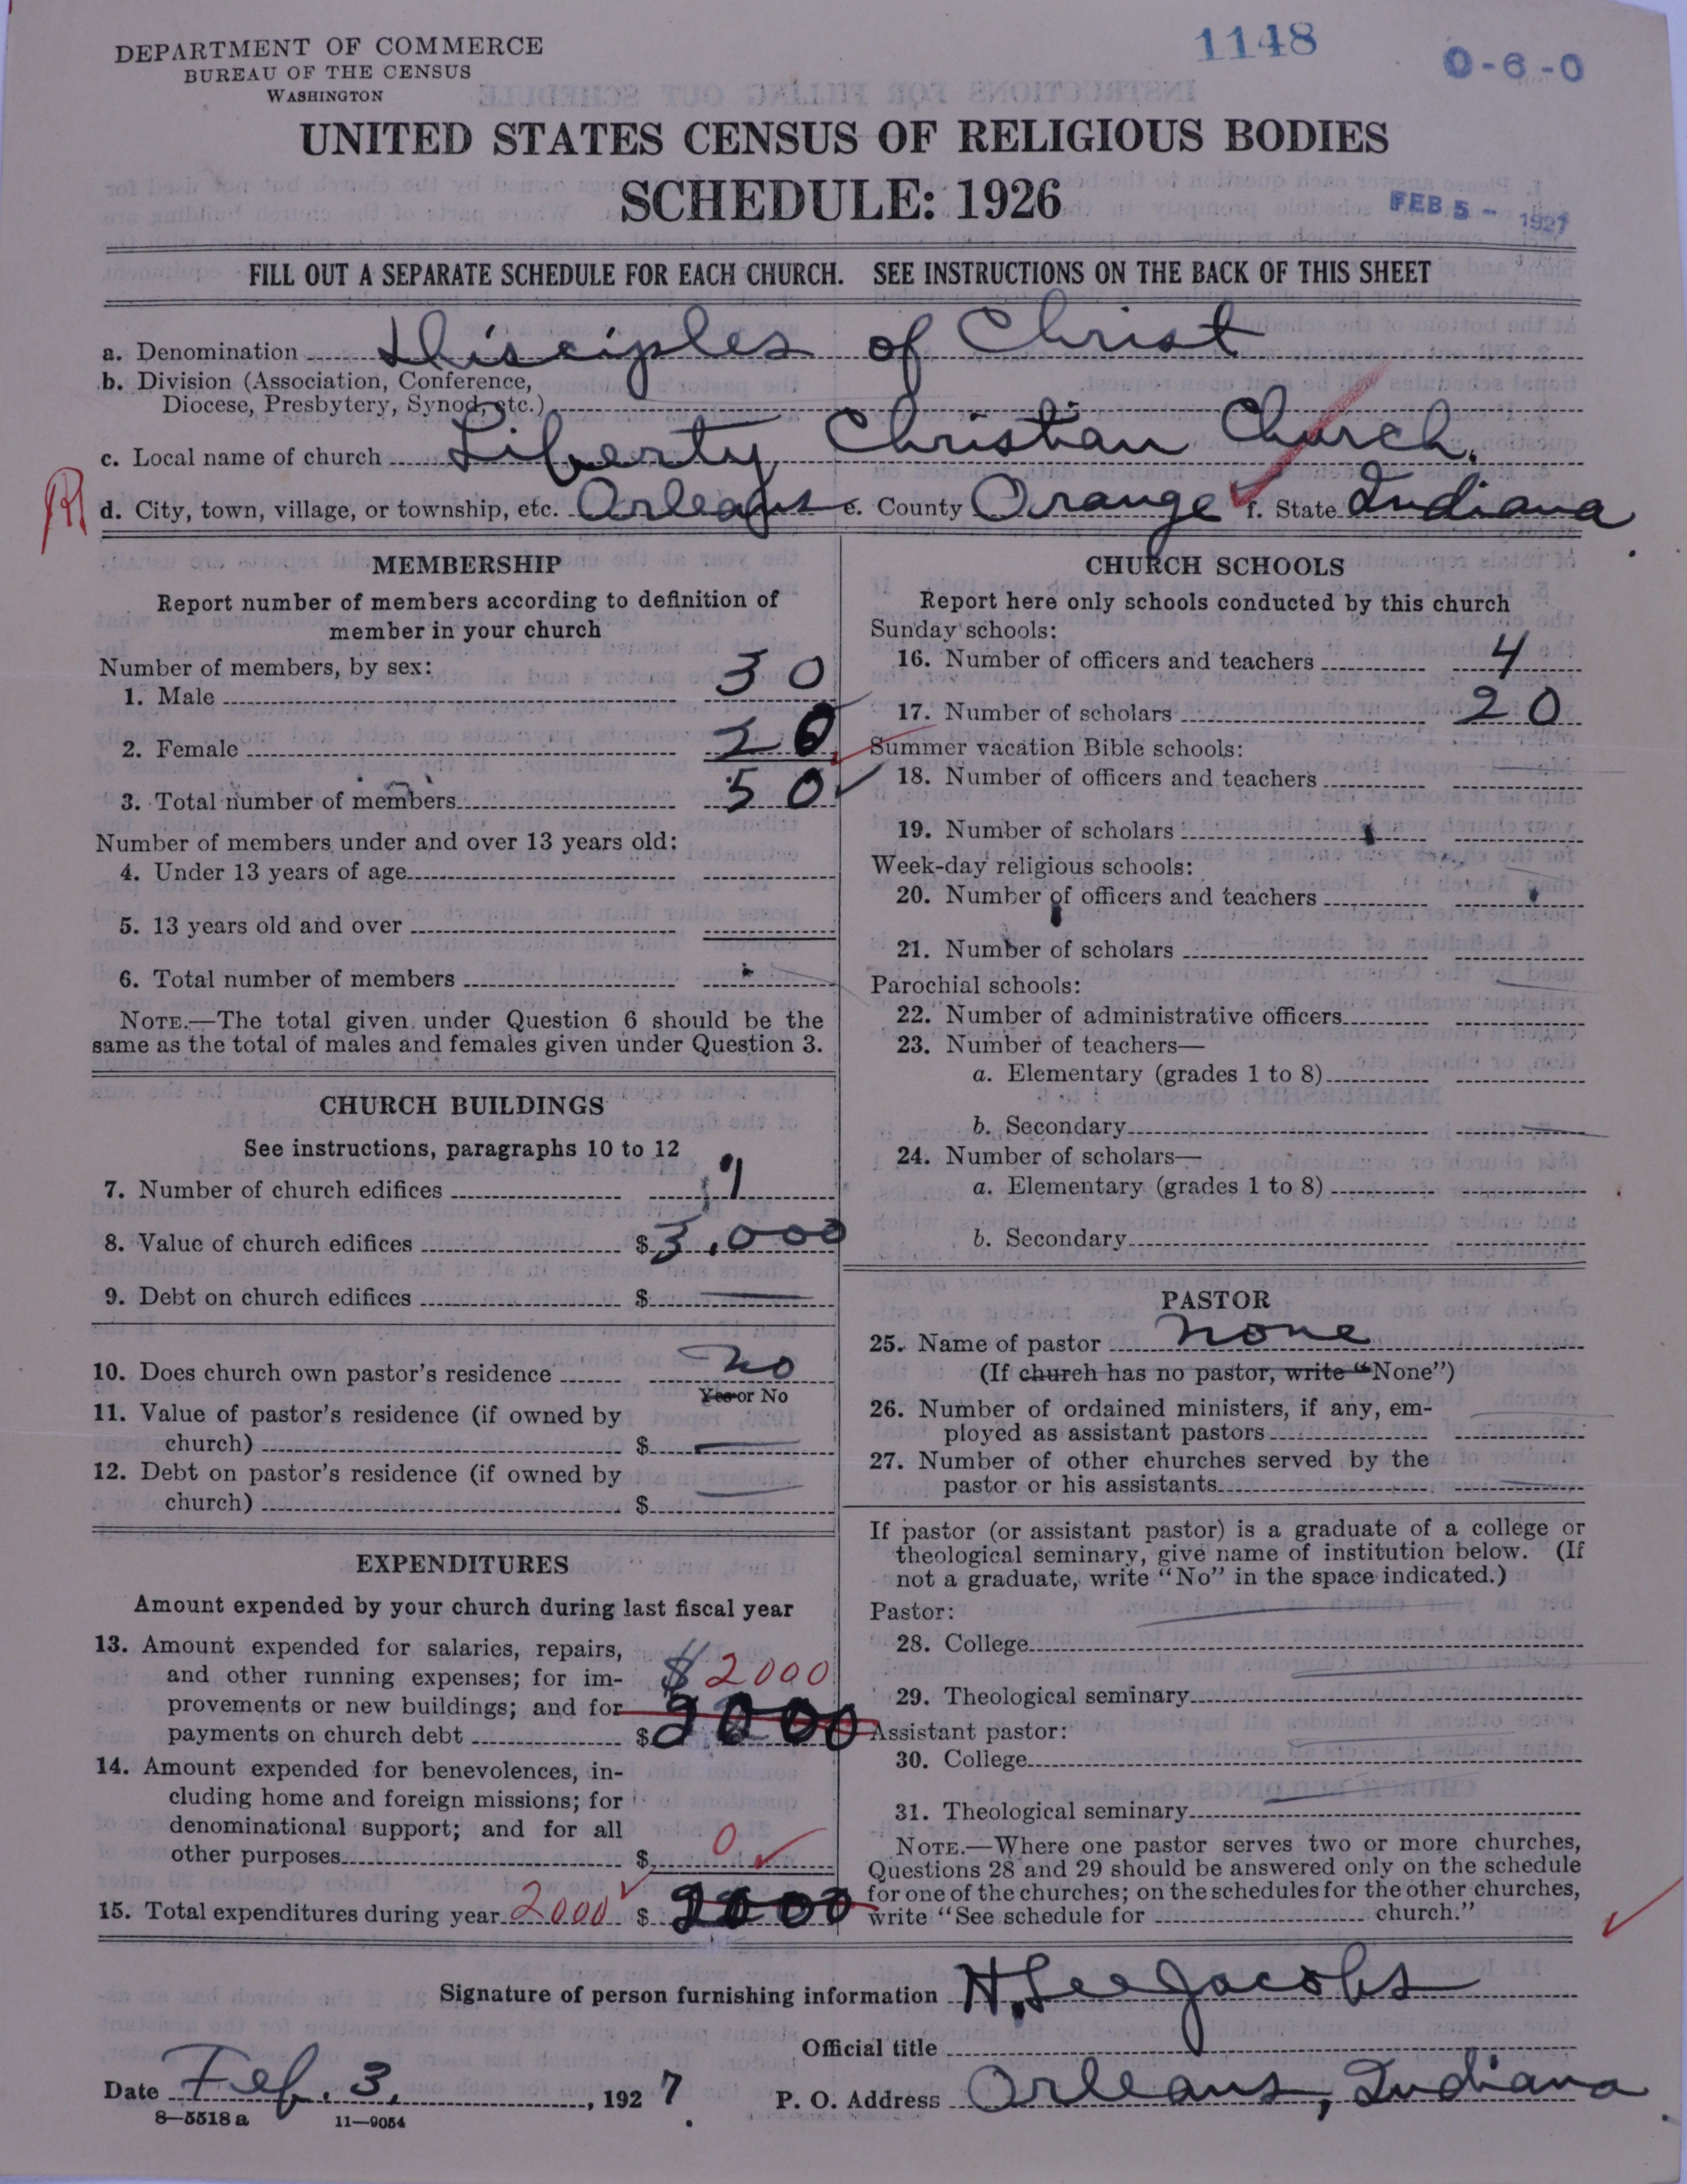 DEPARTMENT OF COMMERCE
BUREAU OF THE CENSUS
WASHINGTON
1148
0-6-0
UNITED STATES CENSUS OF RELIGIOUS BODIES
SCHEDULE: 1926
FEB 5 - 1927
FILL OUT A SEPARATE SCHEDULE FOR EACH CHURCH. SEE INSTRUCTIONS ON THE BACK OF THIS SHEET
a. Denomination Disciples of Christ
b. Division (Association, Conference,
Diocese, Presbytery, Synod, etc.)
c. Local name of church Liberty Christian Church.
R
d. City, town, village, or township, etc. Orleans e. County Orange f. State Indiana.
MEMBERSHIP
Report number of members according to definition of
member in your church
Number of members, by sex:
1. Male 30
2. Female 20
3. Total number of members 50
Number of members under and over 13 years old:
4. Under 13 years of age
5. 13 years old and over
6. Total number of members
NOTE.—The total given under Question 6 should be the
same as the total of males and females given under Question 3.
CHURCH BUILDINGS
See instructions, paragraphs 10 to 12
7. Number of church edifices 1
8. Value of church edifices $ 3,000
9. Debt on church edifices $ —
10. Does church own pastor's residence No
Yes or No
11. Value of pastor's residence (if owned by
church) $ —
12. Debt on pastor's residence (if owned by
church) $ —
EXPENDITURES
Amount expended by your church during last fiscal year
13. Amount expended for salaries, repairs,
and other running expenses; for im-
provements or new buildings; and for
payments on church debt $
$ 2000
2000
14. Amount expended for benevolences, in-
cluding home and foreign missions; for
denominational support; and for all
other purposes $ 0
15. Total expenditures during year 2000 $ 2000
CHURCH SCHOOLS
Report here only schools conducted by this church
Sunday schools:
16. Number of officers and teachers 4
17. Number of scholars 20
Summer vacation Bible schools:
18. Number of officers and teachers
19. Number of scholars
Week-day religious schools:
20. Number of officers and teachers
21. Number of scholars
Parochial schools:
22. Number of administrative officers
23. Number of teachers—
a. Elementary (grades 1 to 8)
b. Secondary —
24. Number of scholars—
a. Elementary (grades 1 to 8)
b. Secondary
PASTOR
25. Name of pastor None
(If church has no pastor, write "None")
26. Number of ordained ministers, if any, em-
ployed as assistant pastors —
27. Number of other churches served by the
pastor or his assistants —
If pastor (or assistant pastor) is a graduate of a college or
theological seminary, give name of institution below. (If
not a graduate, write "No" in the space indicated.)
Pastor:
28. College —
29. Theological seminary —
Assistant pastor:
30. College —
31. Theological seminary —
NOTE.—Where one pastor serves two or more churches,
Questions 28 and 29 should be answered only on the schedule
for one of the churches; on the schedules for the other churches,
write "See schedule for church."
Signature of person furnishing information H. Lee Jacobs
Official title
Date Feb. 3, 1927. P. O. Address Orleans, Indiana
8—5518 a 11—9054